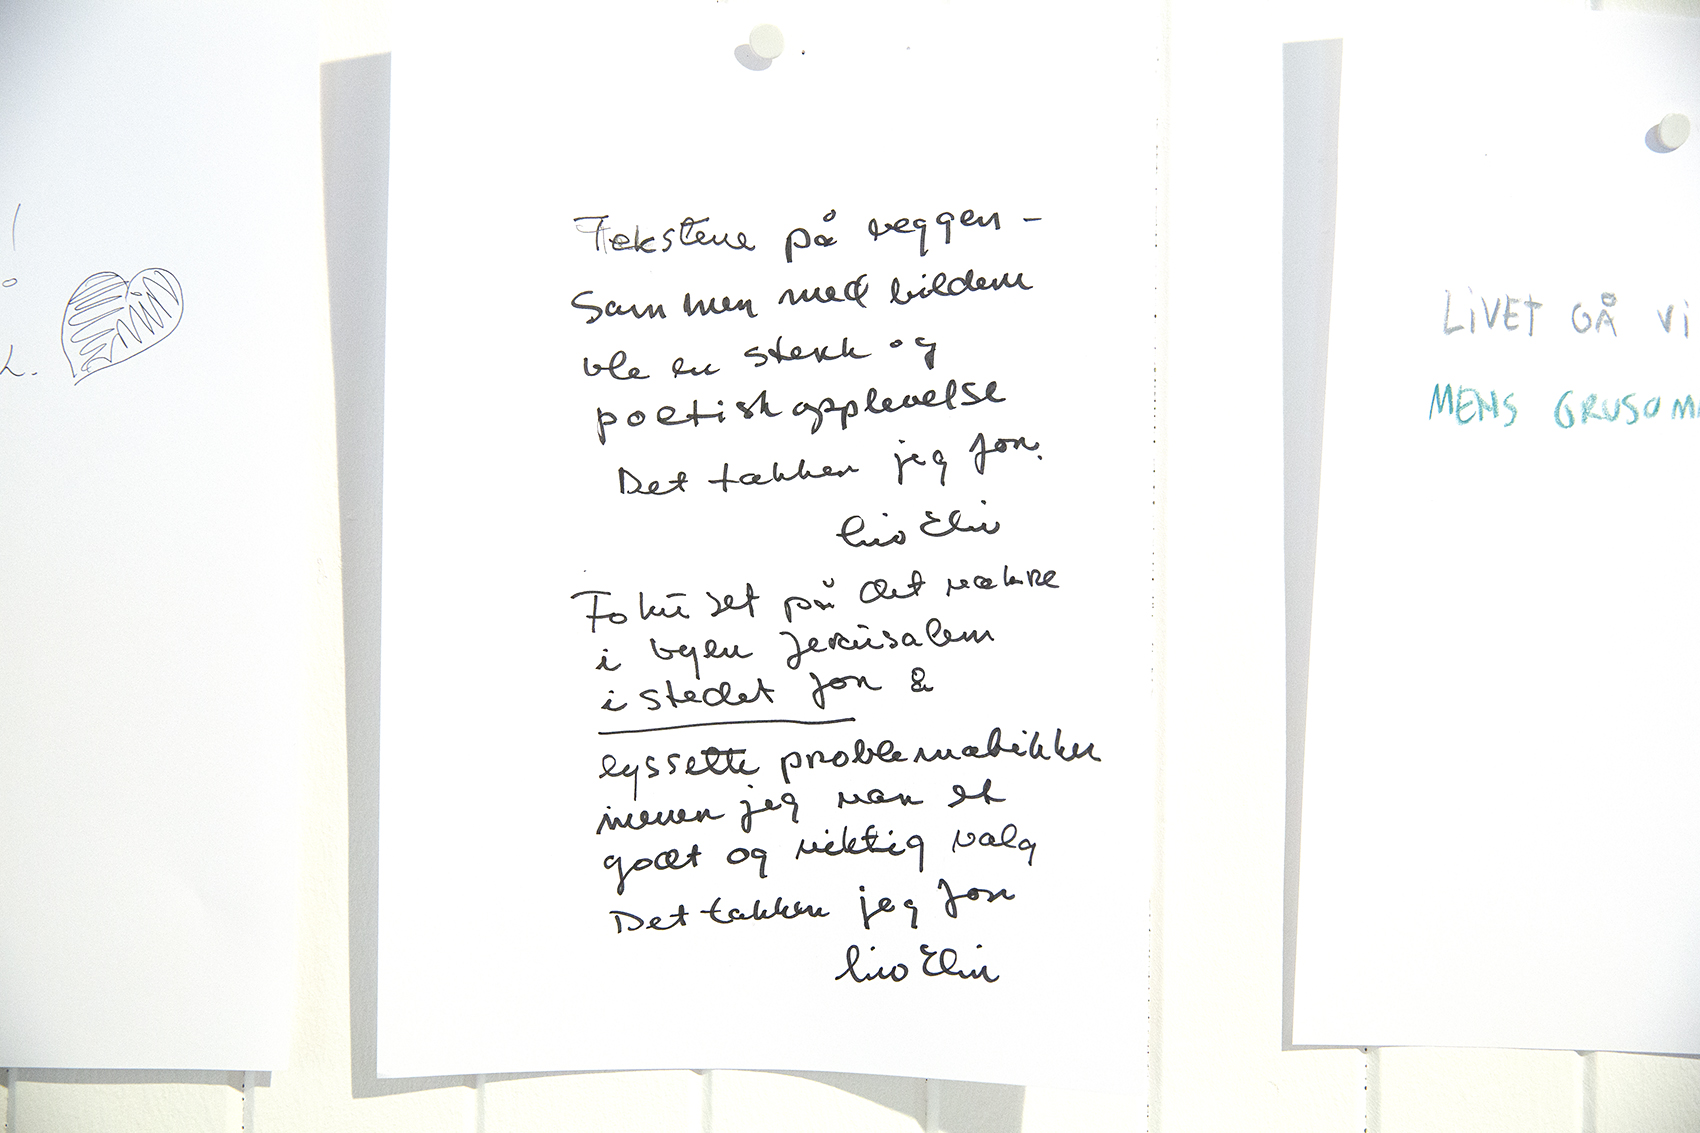 Tekstene på veggen –
Sammen med bildene
ble en sterk og
poetisk opplevelse
Det takker jeg for.
Liv Elin
Fokuset på det vakre
i byen Jerusalem
i stedet for å
lyssette problematikken
mener jeg var et
godt og viktig valg
Det takker jeg for
Liv Elin
LIVET GÅ VI
MENS GRUSOM